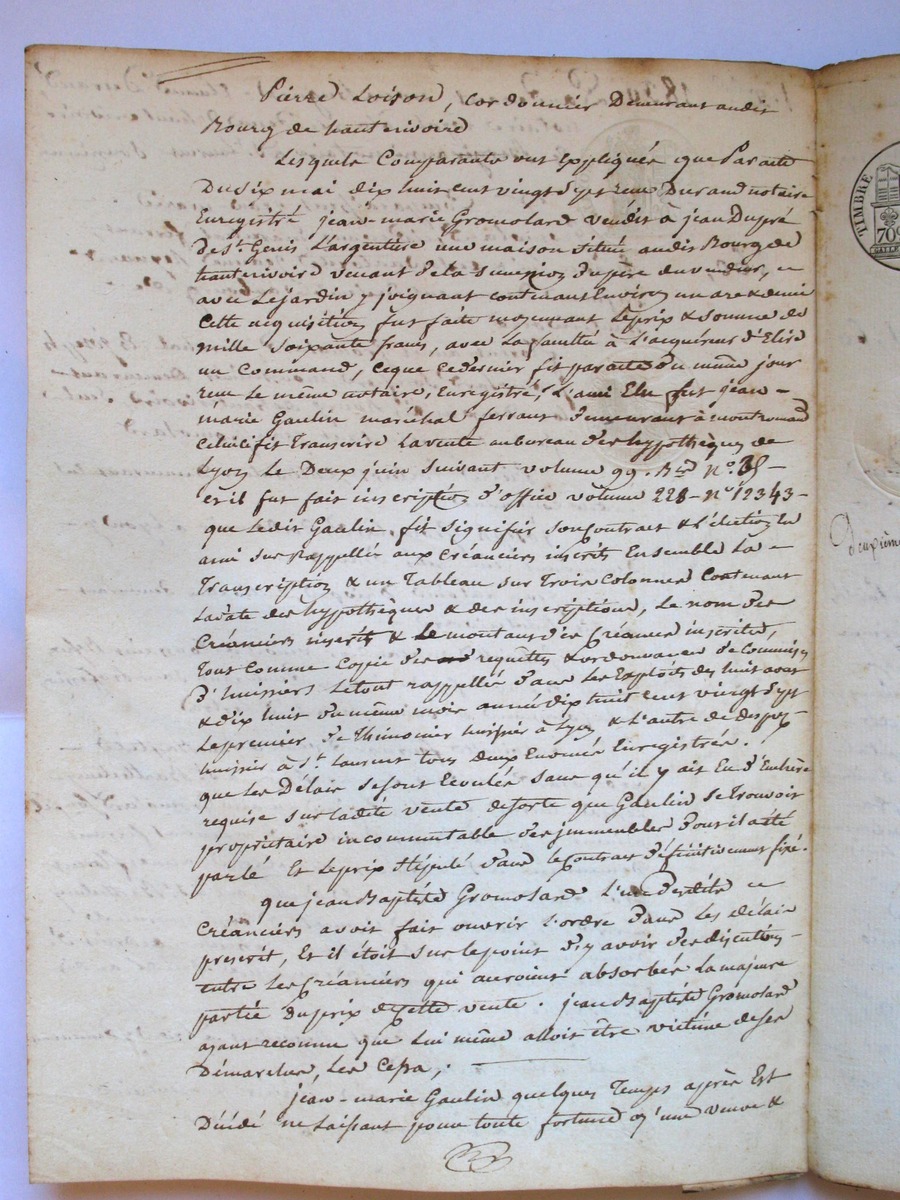 Pierre Loison, Cordonnier Demeurant audit
Bourg de hauterivoire
Lesquels Comparants ont Expliqués que Par acte
Du Six mai dix huit cent vingt Sept recu Durand notaire
Enregistré jean-marie Gromolard vendit à jean Dupré
De St Genis L'argentiere une maison Situé audit Bourg de
hauterivoire venant de la Succession du père du vendeur, ce
avec Le jardin y joignant contenant Environ un are & demi
Cette acquisition fut faite moyennant Le prix & Somme de
mille Soixante francs, avec La faculté à L'acquéreur d'Elire
un Command, ce que ce dernier fit par acte du même jour
recu Le même notaire, Enregistré; L'ami Elu fut jean-
marie Gaulin maréchal ferrant demeurant à montromand
Celui ci fit Transcrire La vente au bureau des hypothèques de
Lyon Le Deux juin Suivant volume 99. No.
et il fut fait inscription d'office volume 228 - No 12343 -
que Ledit Gaulin fit Signifier Son Contrat & L'élection en
ami Sus Rappellés aux Créanciers inscrits Ensemble La
Transcription & un Tableau Sur Trois Colonnes Contenant
La date des hypothèques & des inscriptions, Le nom des
Créanciers inscrits & Le montant des Créances inscrites,
Tout comme Copie des requêtes & ordonnances de Commission
d'huissiers Le tout rappellés dans Les Exploits des huit aout
& dix huit du même mois année dix huit cent vingt Sept
Le premier de Thimonier huissier à Lyon & L'autre de
huissier à St Laurent tous deux Enregistrés.
que Les Délais Se Sont Ecoulés Sans qu'il y ait Eu d'Enchère
requise Sur La dite vente de Sorte que Gaulin Se Trouvoit
propriétaire incommutable des immeubles dont il a été
parlé Et Le prix Stipulé dans le Contrat définitivement fixé.
que jean Baptiste Gromolard L'un Desdits
Créanciers avoit fait ouvrir L'ordre dans Les délais
prescrit, Et il étoit Sur Le point d'y avoir des discutions
entre Les Créanciers qui auroient absorbés La majeure
partie Du prix de Cette vente. jean Baptiste Gromolard
ayant reconnu que Lui même alloit être victime de Ses
Démarches, Les Cessa;
jean-marie Gaulin quelques Temps après Est
Décédé ne Laissant pour toute fortune qu'une veuve &
TIMBRE
70c
Deuxième